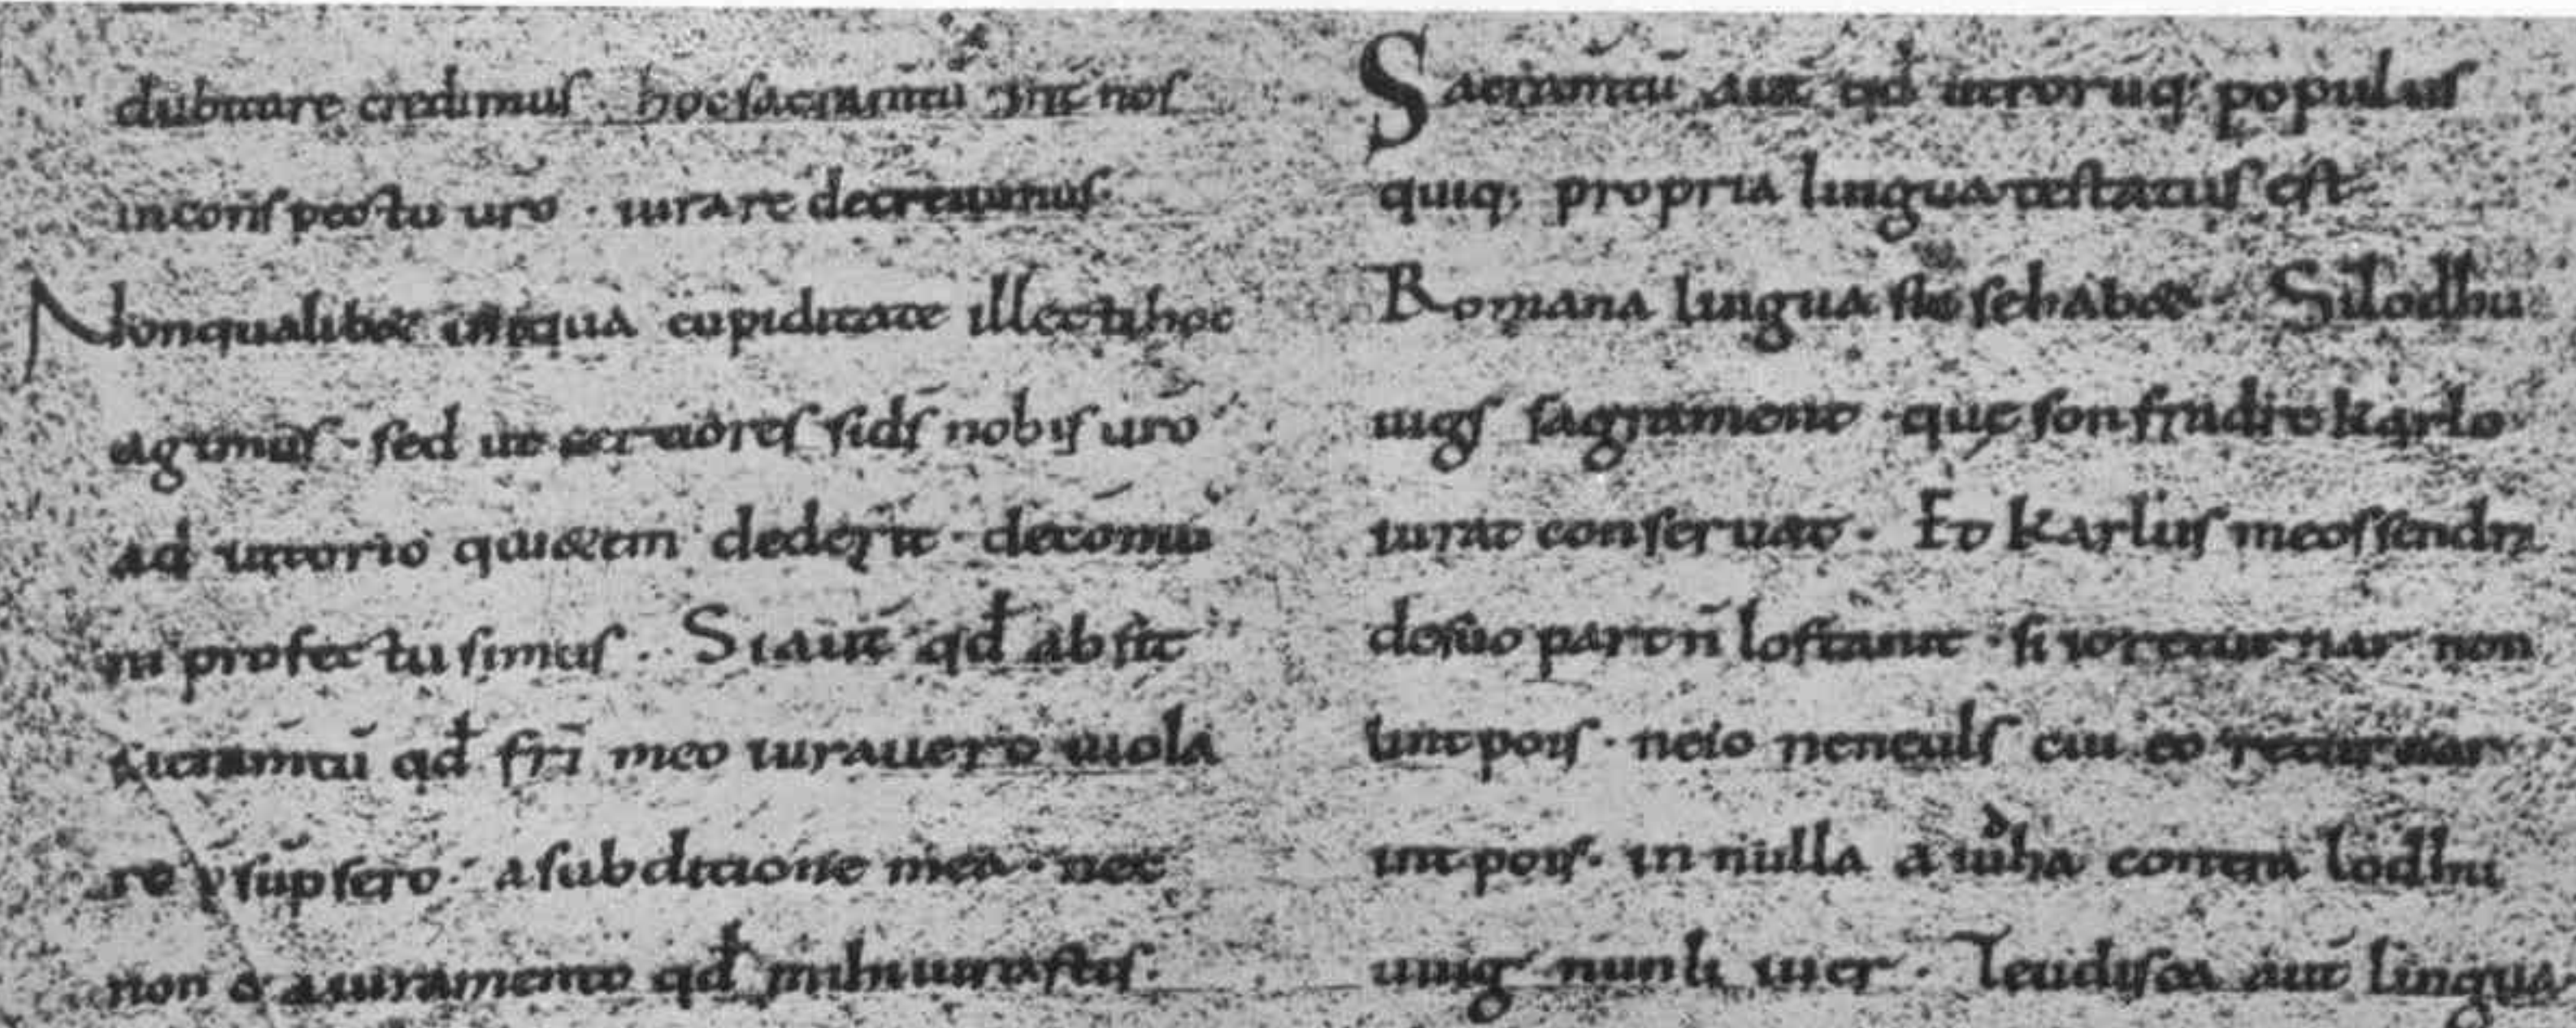 dubitare credimus . hoc sacramtū Int̄ nos
inconspectu uro . iurare decreuimus.
Nonqualibet iniqua cupiditate illecti hoc
agimus . sed ut certiores sids̄ nobis uro
ad iutorio quietem dederit . decōmu
ni profectu simus . Si aut̄ qđ absit
sacramtū qđ fri meo iurauero uiola
re p̄sūpsero . a subditione mea . nec
non & a iuramento qđ mihi iurastis .
Sacramtū aut̄ qđ utrorūq; populus
quiq; propria lingua testatus est
Romana lingua sic se habet . Silodhu
uigs sagrament . que son fradre karlo
iurat conseruat . Et Karlus meos sendra
desuo partn̄ lofstanit . si ioreturnar non
lint pois . neio neneuls cui eo returnar
int pois . in nulla aiudha contra lodhu
uuig nunli iuer . Teudisca aut̄ lingua